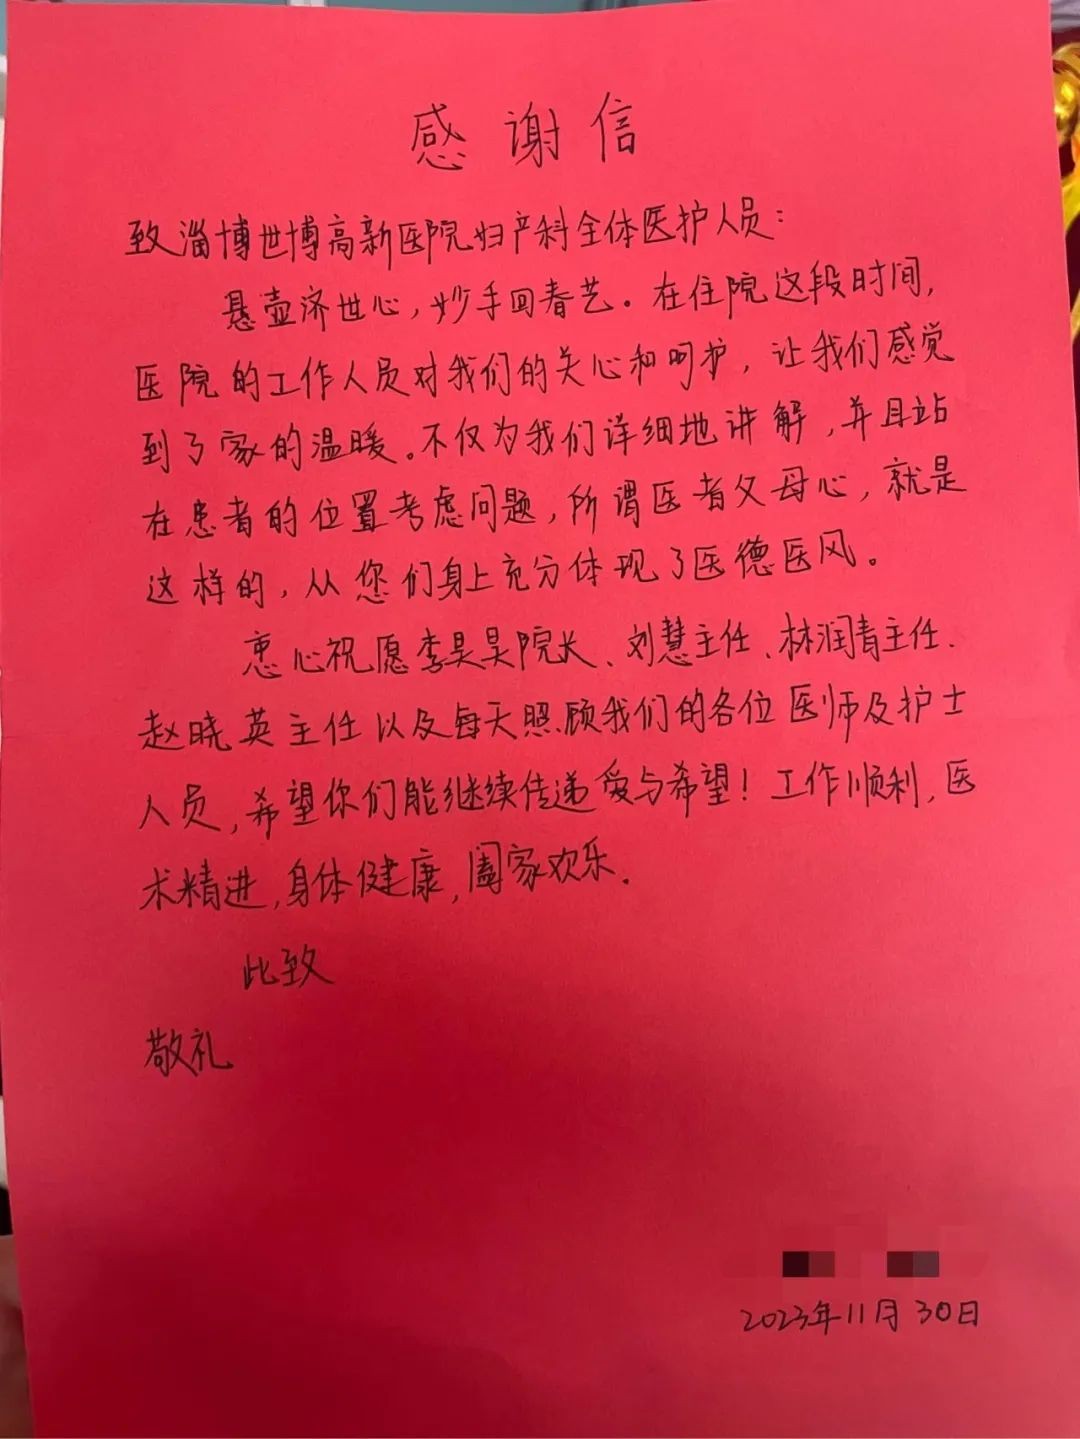 感谢信
致淄博世博高新医院妇产科全体医护人员：
悬壶济世心，妙手回春艺。在住院这段时间，
医院的工作人员对我们的关心和呵护，让我们感觉
到了家的温暖。不仅为我们详细地讲解，并且站
在患者的位置考虑问题，所谓医者父母心，就是
这样的，从您们身上充分体现了医德医风。
衷心祝愿李昊昊院长、刘慧主任、林润青主任、
赵晓英主任以及每天照顾我们的各位医师及护士
人员，希望你们能继续传递爱与希望！工作顺利，医
术精进，身体健康，阖家欢乐。
此致
敬礼
2023年11月30日